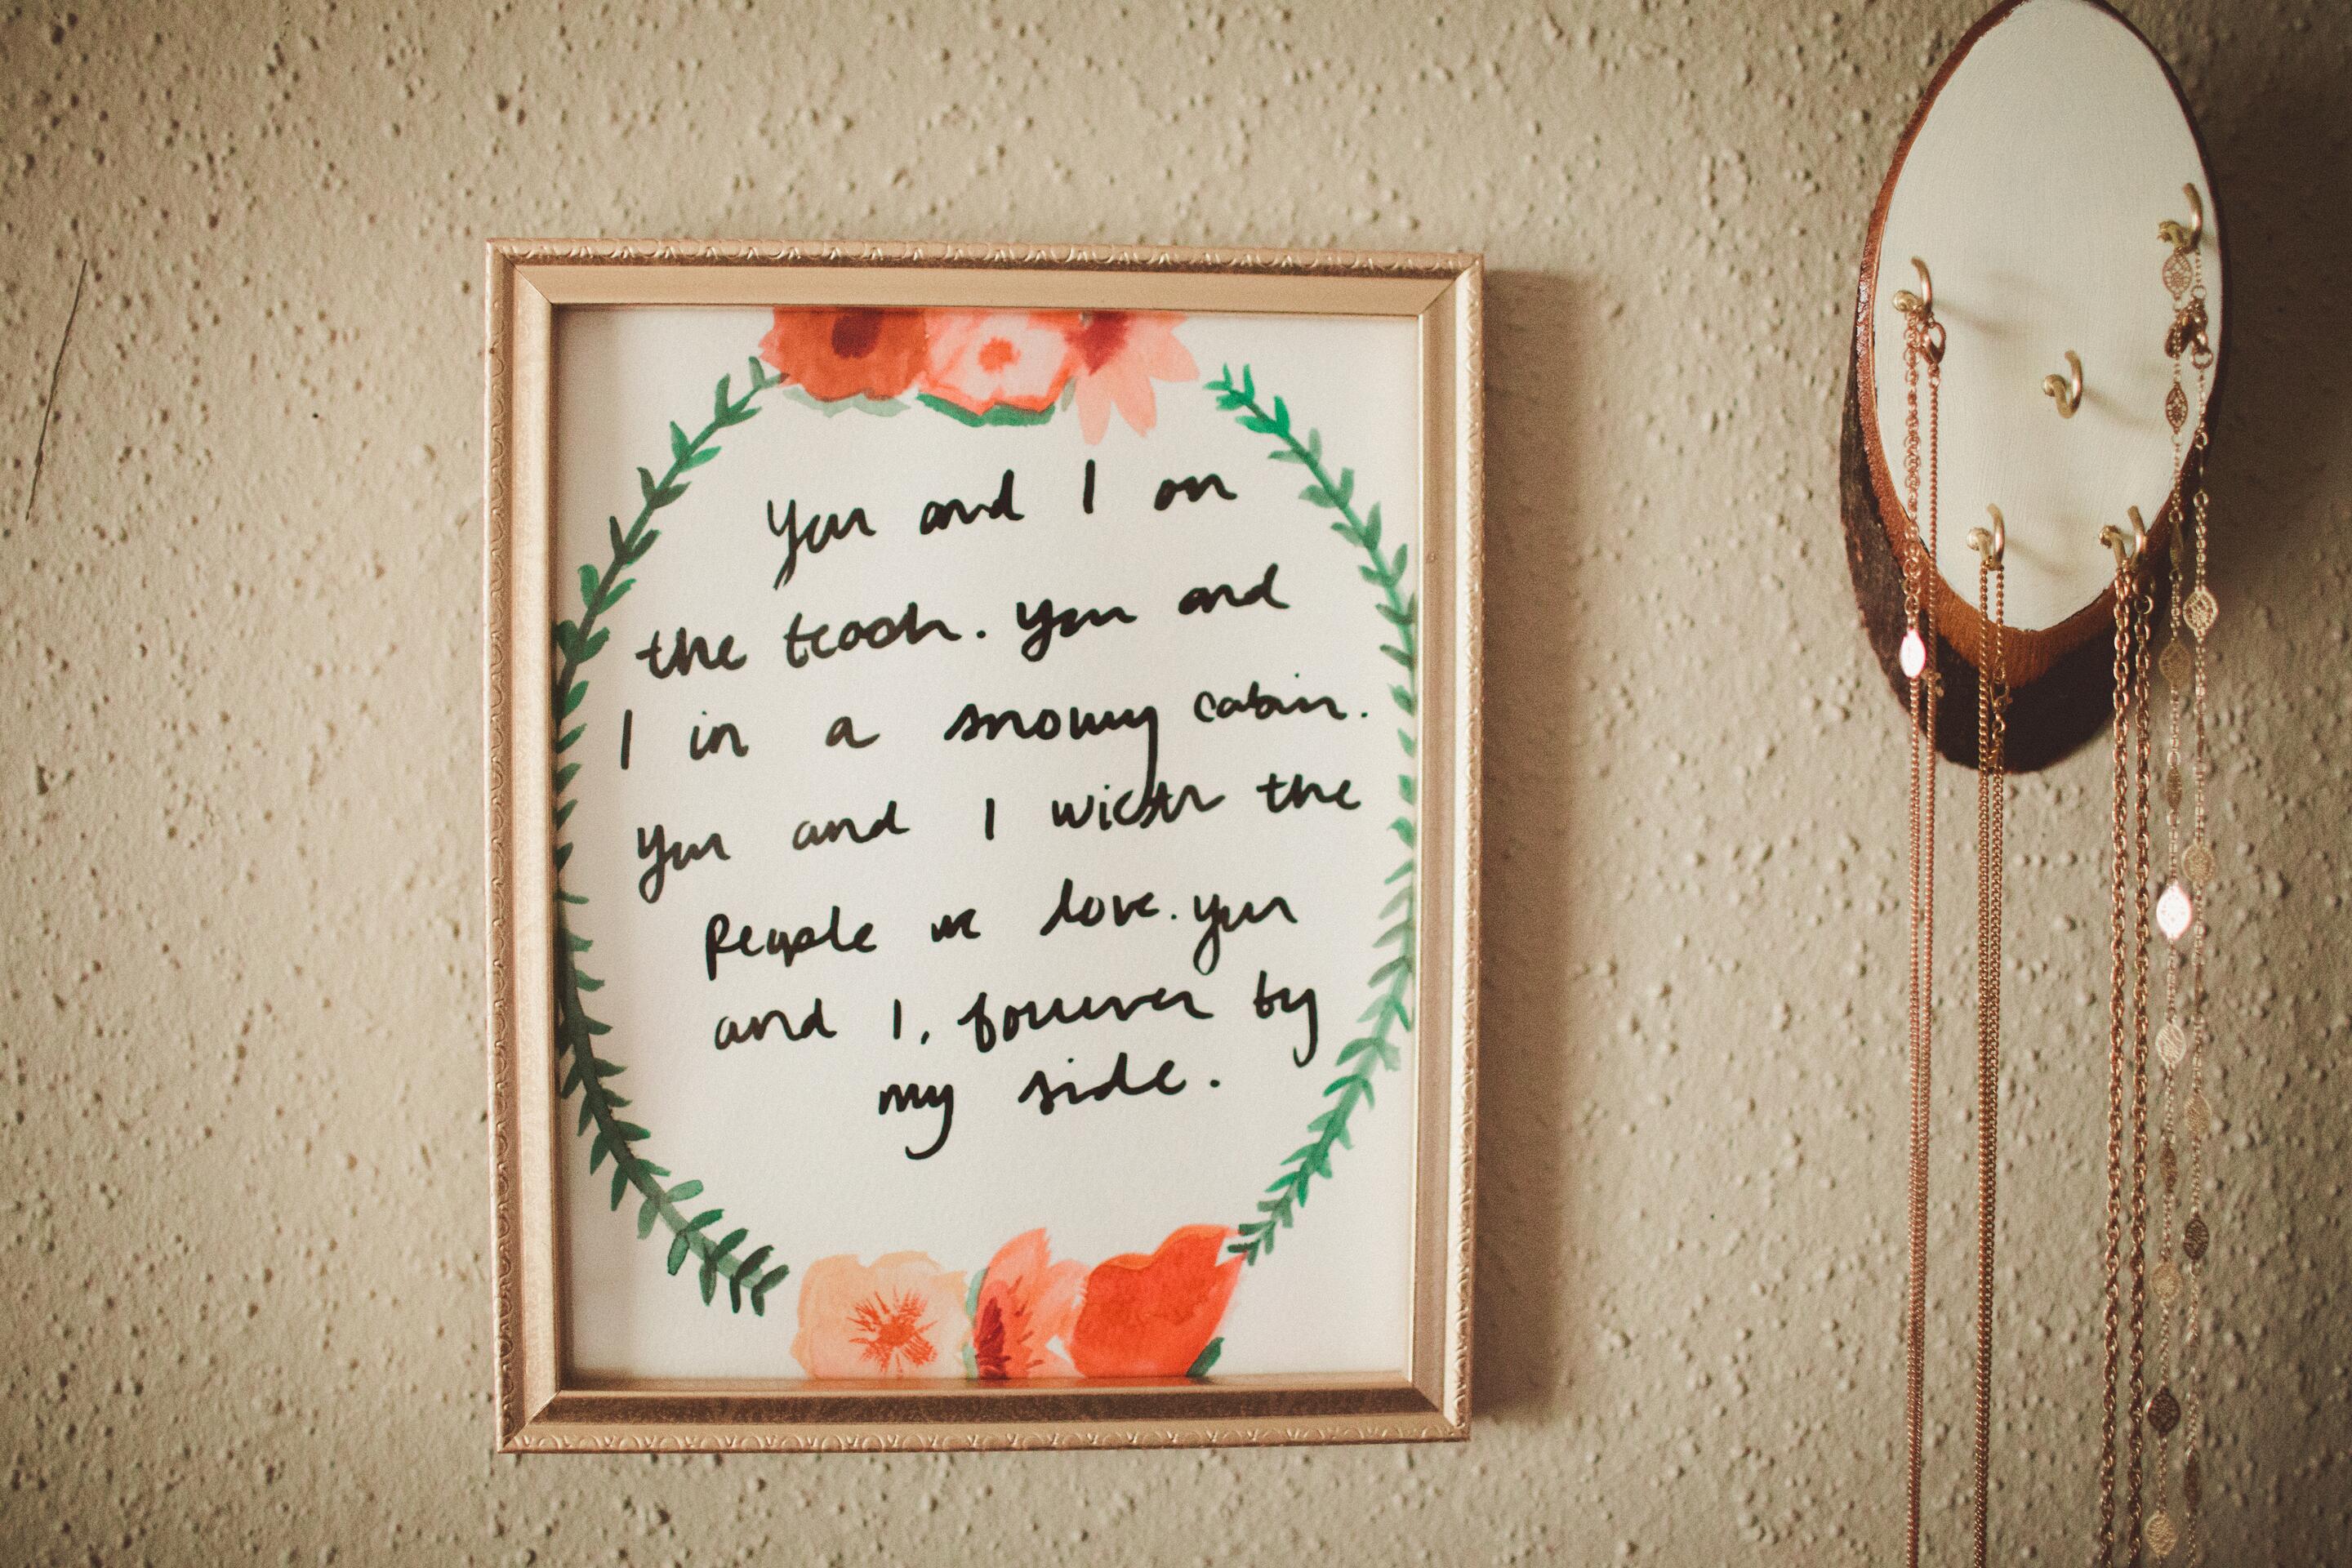 You and I on
the beach. You and
I in a snowy cabin.
You and I with the
People we love. You
and I, forever by
my side.